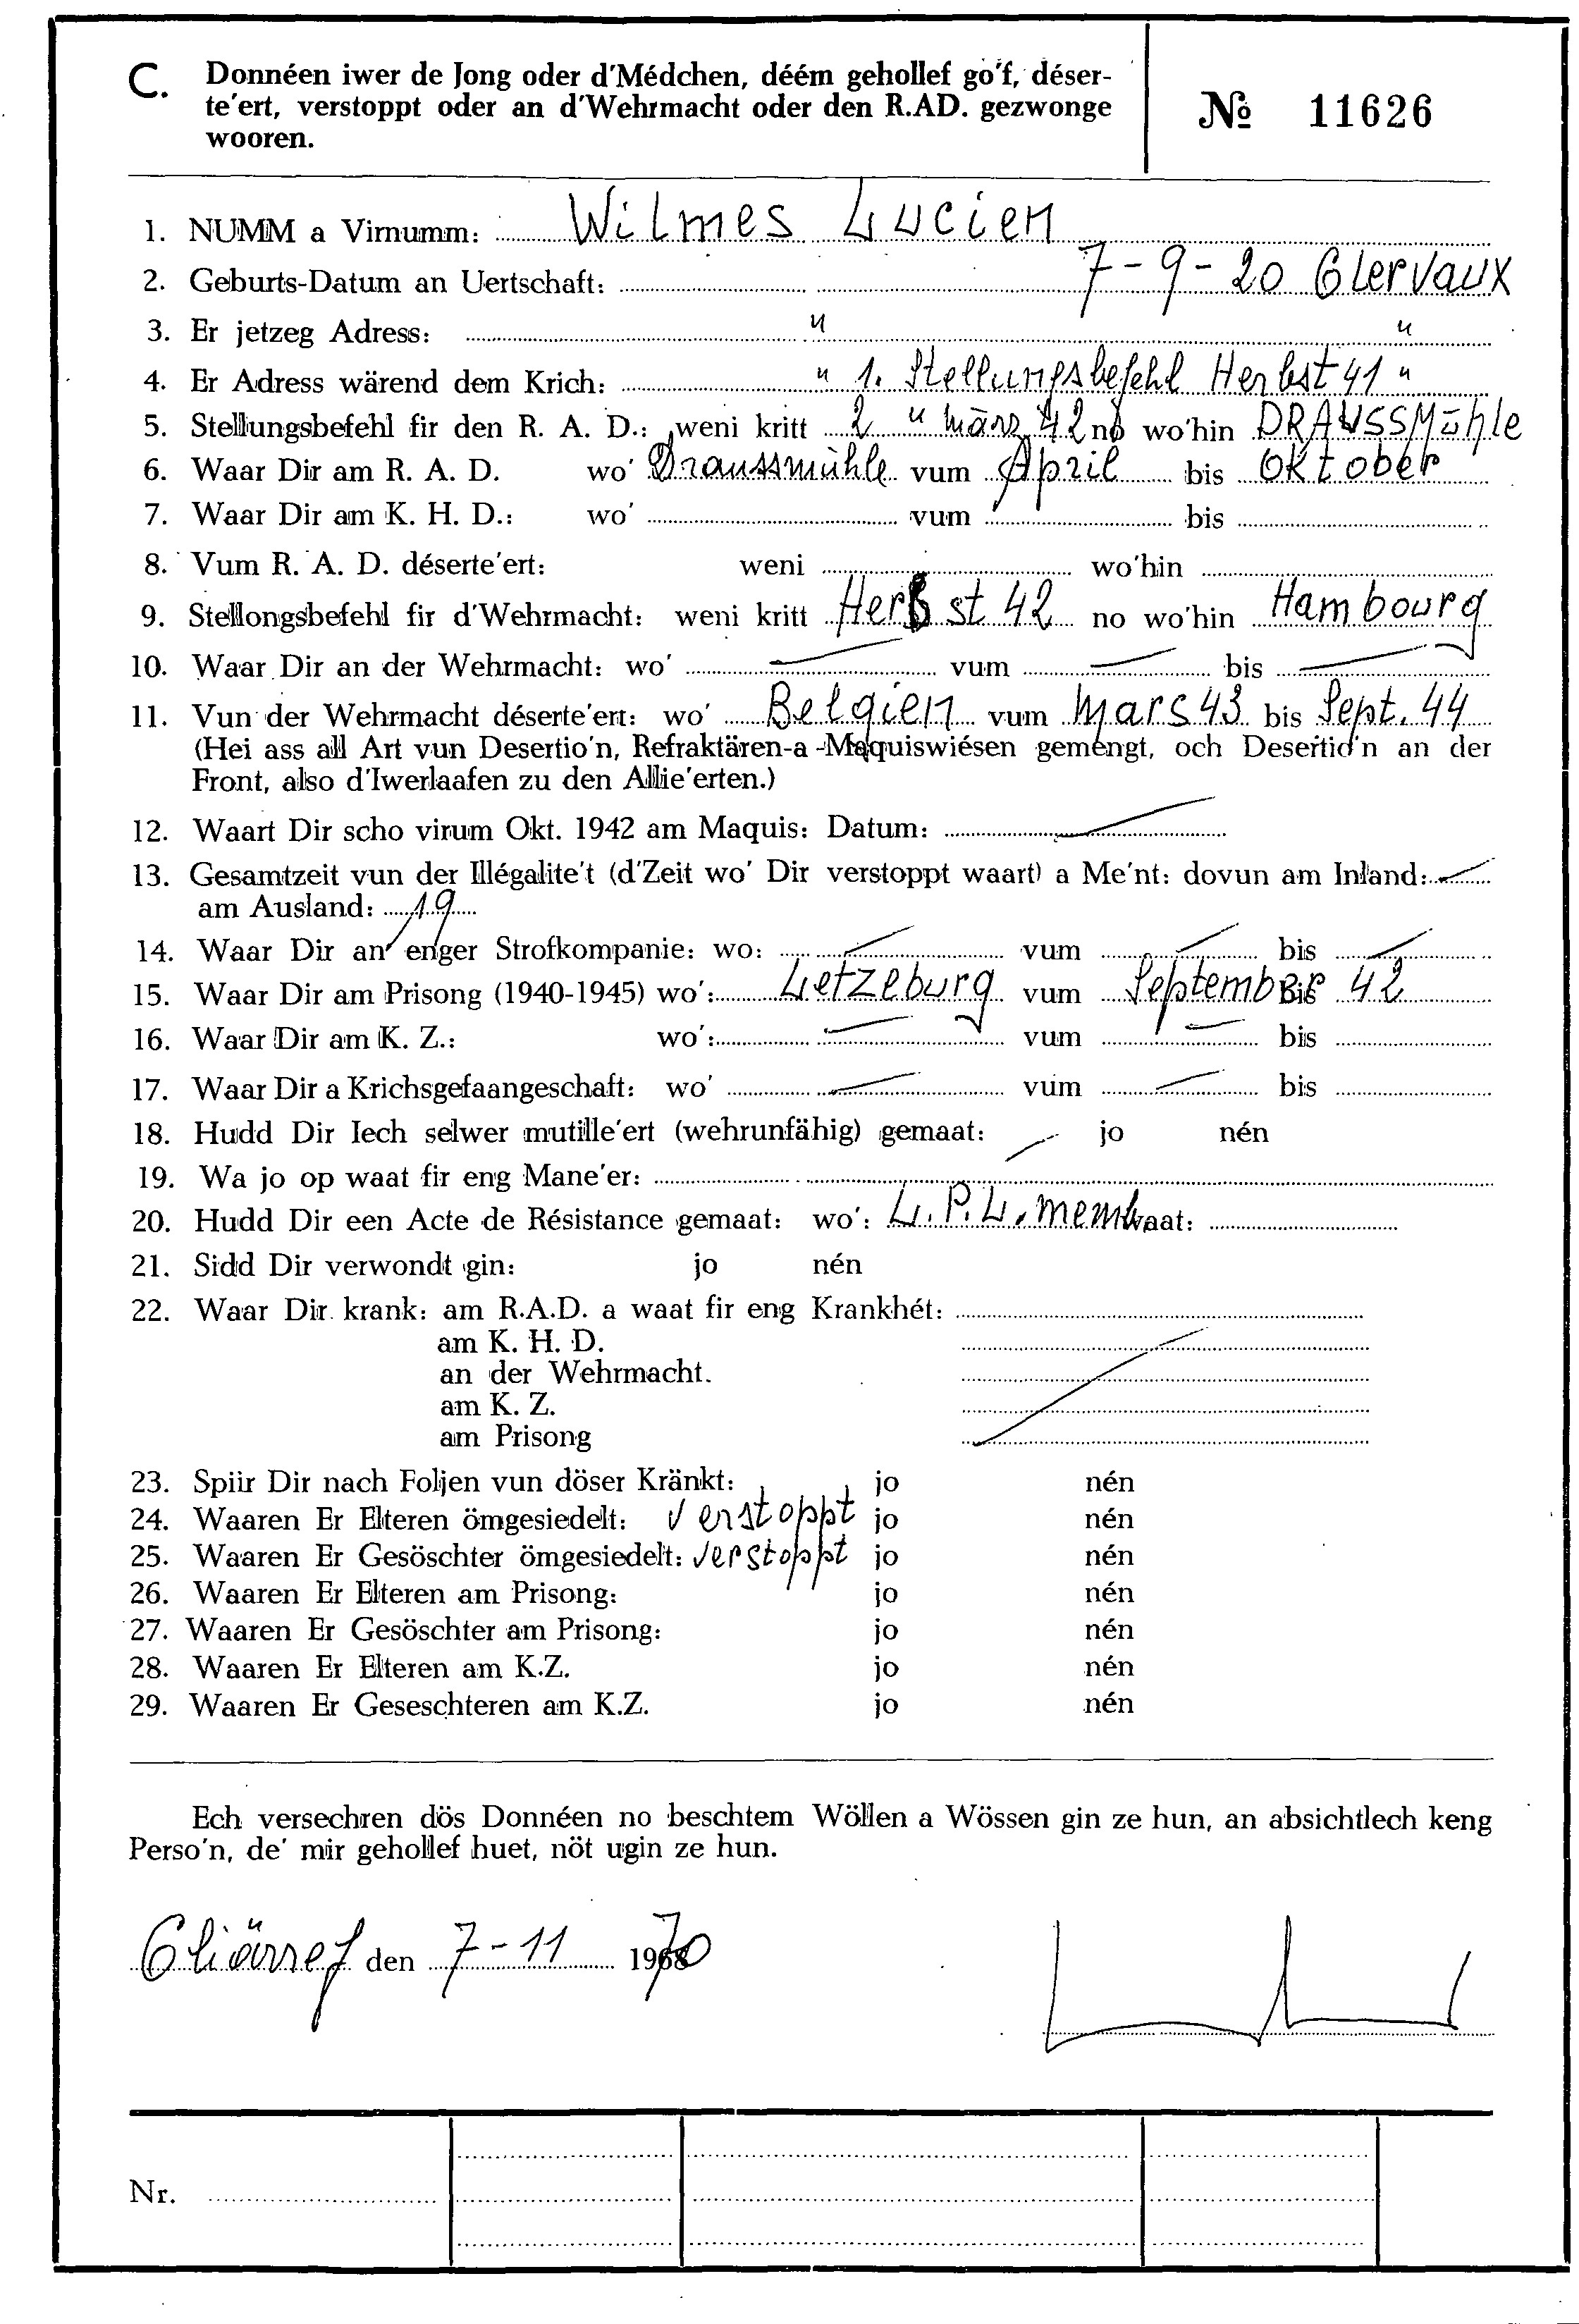 C. Donnéen iwer de Jong oder d'Médchen, déém gehollef go'f, déser-
te'ert, verstoppt oder an d'Wehrmacht oder den R.AD. gezwonge
wooren.
№ 11626
1. NUMM a Virnumm: Wilmes Lucien
2. Geburts-Datum an Uertschaft: 7-9-20 Clervaux
3. Er jetzeg Adress: " "
4. Er Adress wärend dem Krich: " 1. Stellungsbefehl Herbst 41 "
5. Stellungsbefehl fir den R. A. D.: weni kritt 2 " März 42 no wo'hin DRAUSSMühle
6. Waar Dir am R. A. D. wo' Draussmühle vum April bis Oktober
7. Waar Dir am K. H. D.: wo' vum bis
8. Vum R. A. D. déserte'ert: weni wo'hin
9. Stellongsbefehl fir d'Wehrmacht: weni kritt Herbst 42 no wo'hin Hambourg
10. Waar Dir an der Wehrmacht: wo' — vum — bis —
11. Vun der Wehrmacht déserte'ert: wo' Belgien vum Mars 43 bis Sept. 44
(Hei ass all Art vun Desertio'n, Refraktären-a-Maquiswiésen gemengt, och Desertio'n an der
Front, also d'Iwerlaafen zu den Allie'erten.)
12. Waart Dir scho virum Okt. 1942 am Maquis: Datum: —
13. Gesamtzeit vun der Illégalite't (d'Zeit wo' Dir verstoppt waart) a Me'nt: dovun am Inland: —
am Ausland: 19
14. Waar Dir an enger Strofkompanie: wo: — vum — bis —
15. Waar Dir am Prisong (1940-1945) wo': Letzeburg vum September bis 42
16. Waar Dir am K. Z.: wo': — vum — bis
17. Waar Dir a Krichsgefaangeschaft: wo' — vum — bis
18. Hudd Dir Iech selwer mutille'ert (wehrunfähig) gemaat: — jo nén
19. Wa jo op waat fir eng Mane'er:
20. Hudd Dir een Acte de Résistance gemaat: wo': L.P.L. memb waat:
21. Sidd Dir verwondt gin: jo nén
22. Waar Dir krank: am R.A.D. a waat fir eng Krankhét:
am K. H. D.
an der Wehrmacht.
am K. Z.
am Prisong
23. Spiir Dir nach Foljen vun döser Kränkt: jo nén
24. Waaren Er Elteren ömgesiedelt: Verstoppt jo nén
25. Waaren Er Gesöschter ömgesiedelt: Verstoppt jo nén
26. Waaren Er Elteren am Prisong: jo nén
27. Waaren Er Gesöschter am Prisong: jo nén
28. Waaren Er Elteren am K.Z. jo nén
29. Waaren Er Geseschteren am K.Z. jo nén
Ech versechren dös Donnéen no beschtem Wöllen a Wössen gin ze hun, an absichtlech keng
Perso'n, de' mir gehollef huet, nöt ugin ze hun.
Cliärref den 7-11 1970
Nr.